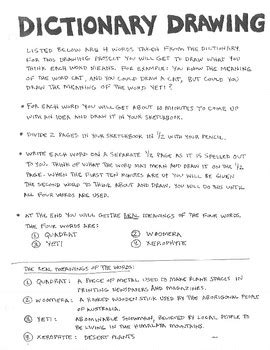 DICTIONARY DRAWING
LISTED BELOW ARE 4 WORDS TAKEN FROM THE DICTIONARY.
FOR THIS DRAWING PROJECT YOU WILL GET TO DRAW WHAT YOU
THINK EACH WORD MEANS. FOR EXAMPLE: YOU KNOW THE MEANING
OF THE WORD CAT, AND YOU COULD DRAW A CAT, BUT COULD YOU
DRAW THE MEANING OF THE WORD YETI?
• FOR EACH WORD YOU WILL GET ABOUT 10 MINUTES TO COME UP
WITH AN IDEA AND DRAW IT IN YOUR SKETCHBOOK.
• DIVIDE 2 PAGES IN YOUR SKETCHBOOK IN 1/2 WITH YOUR PENCIL.
• WRITE EACH WORD ON A SEPARATE 1/2 PAGE AS IT IS SPELLED OUT
TO YOU. THINK OF WHAT THE WORD MAY MEAN AND DRAW IT ON THE
1/2 PAGE. WHEN THE FIRST TEN MINUTES ARE UP YOU WILL BE GIVEN
THE SECOND WORD TO THINK ABOUT AND DRAW. YOU WILL DO THIS UNTIL
ALL FOUR WORDS ARE USED.
• AT THE END YOU WILL GET THE REAL MEANINGS OF THE FOUR WORDS.
THE FOUR WORDS ARE:
① QUADRAT ② WOOMERA
③ YETI ④ XEROPHYTE
THE REAL MEANINGS OF THE WORDS:
① QUADRAT: A PIECE OF METAL USED TO MAKE BLANK SPACES IN
PRINTING NEWSPAPERS AND MAGAZINES.
② WOOMERA: A NOTCHED WOODEN STICK USED BY THE ABORIGINAL PEOPLE
OF AUSTRALIA.
③ YETI: ABOMINABLE SNOWMAN, BELIEVED BY LOCAL PEOPLE TO
BE LIVING IN THE HIMALAYA MOUNTAINS.
④ XEROPHYTE: DESERT PLANTS